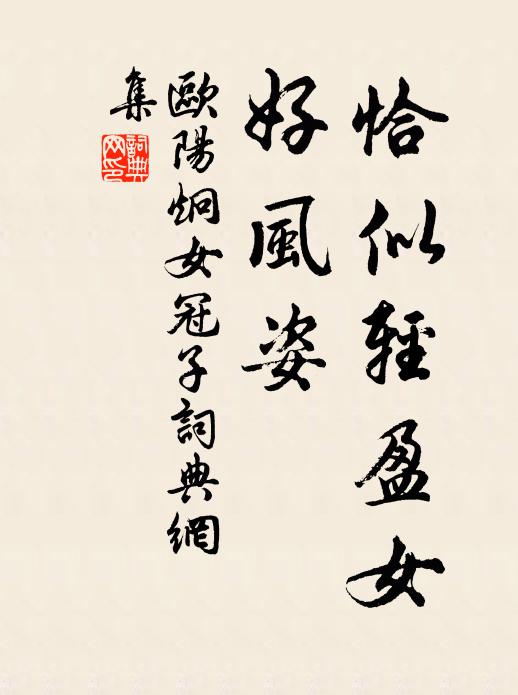 恰似輕盈女
好風姿
歐陽炯女冠子詞典網
集
詞典
网印